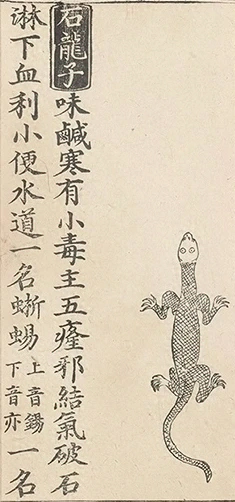 石龍子味鹹寒有小毒主五癃邪結氣破石
淋下血利小便水道一名蜥蜴上音錫下音亦一名